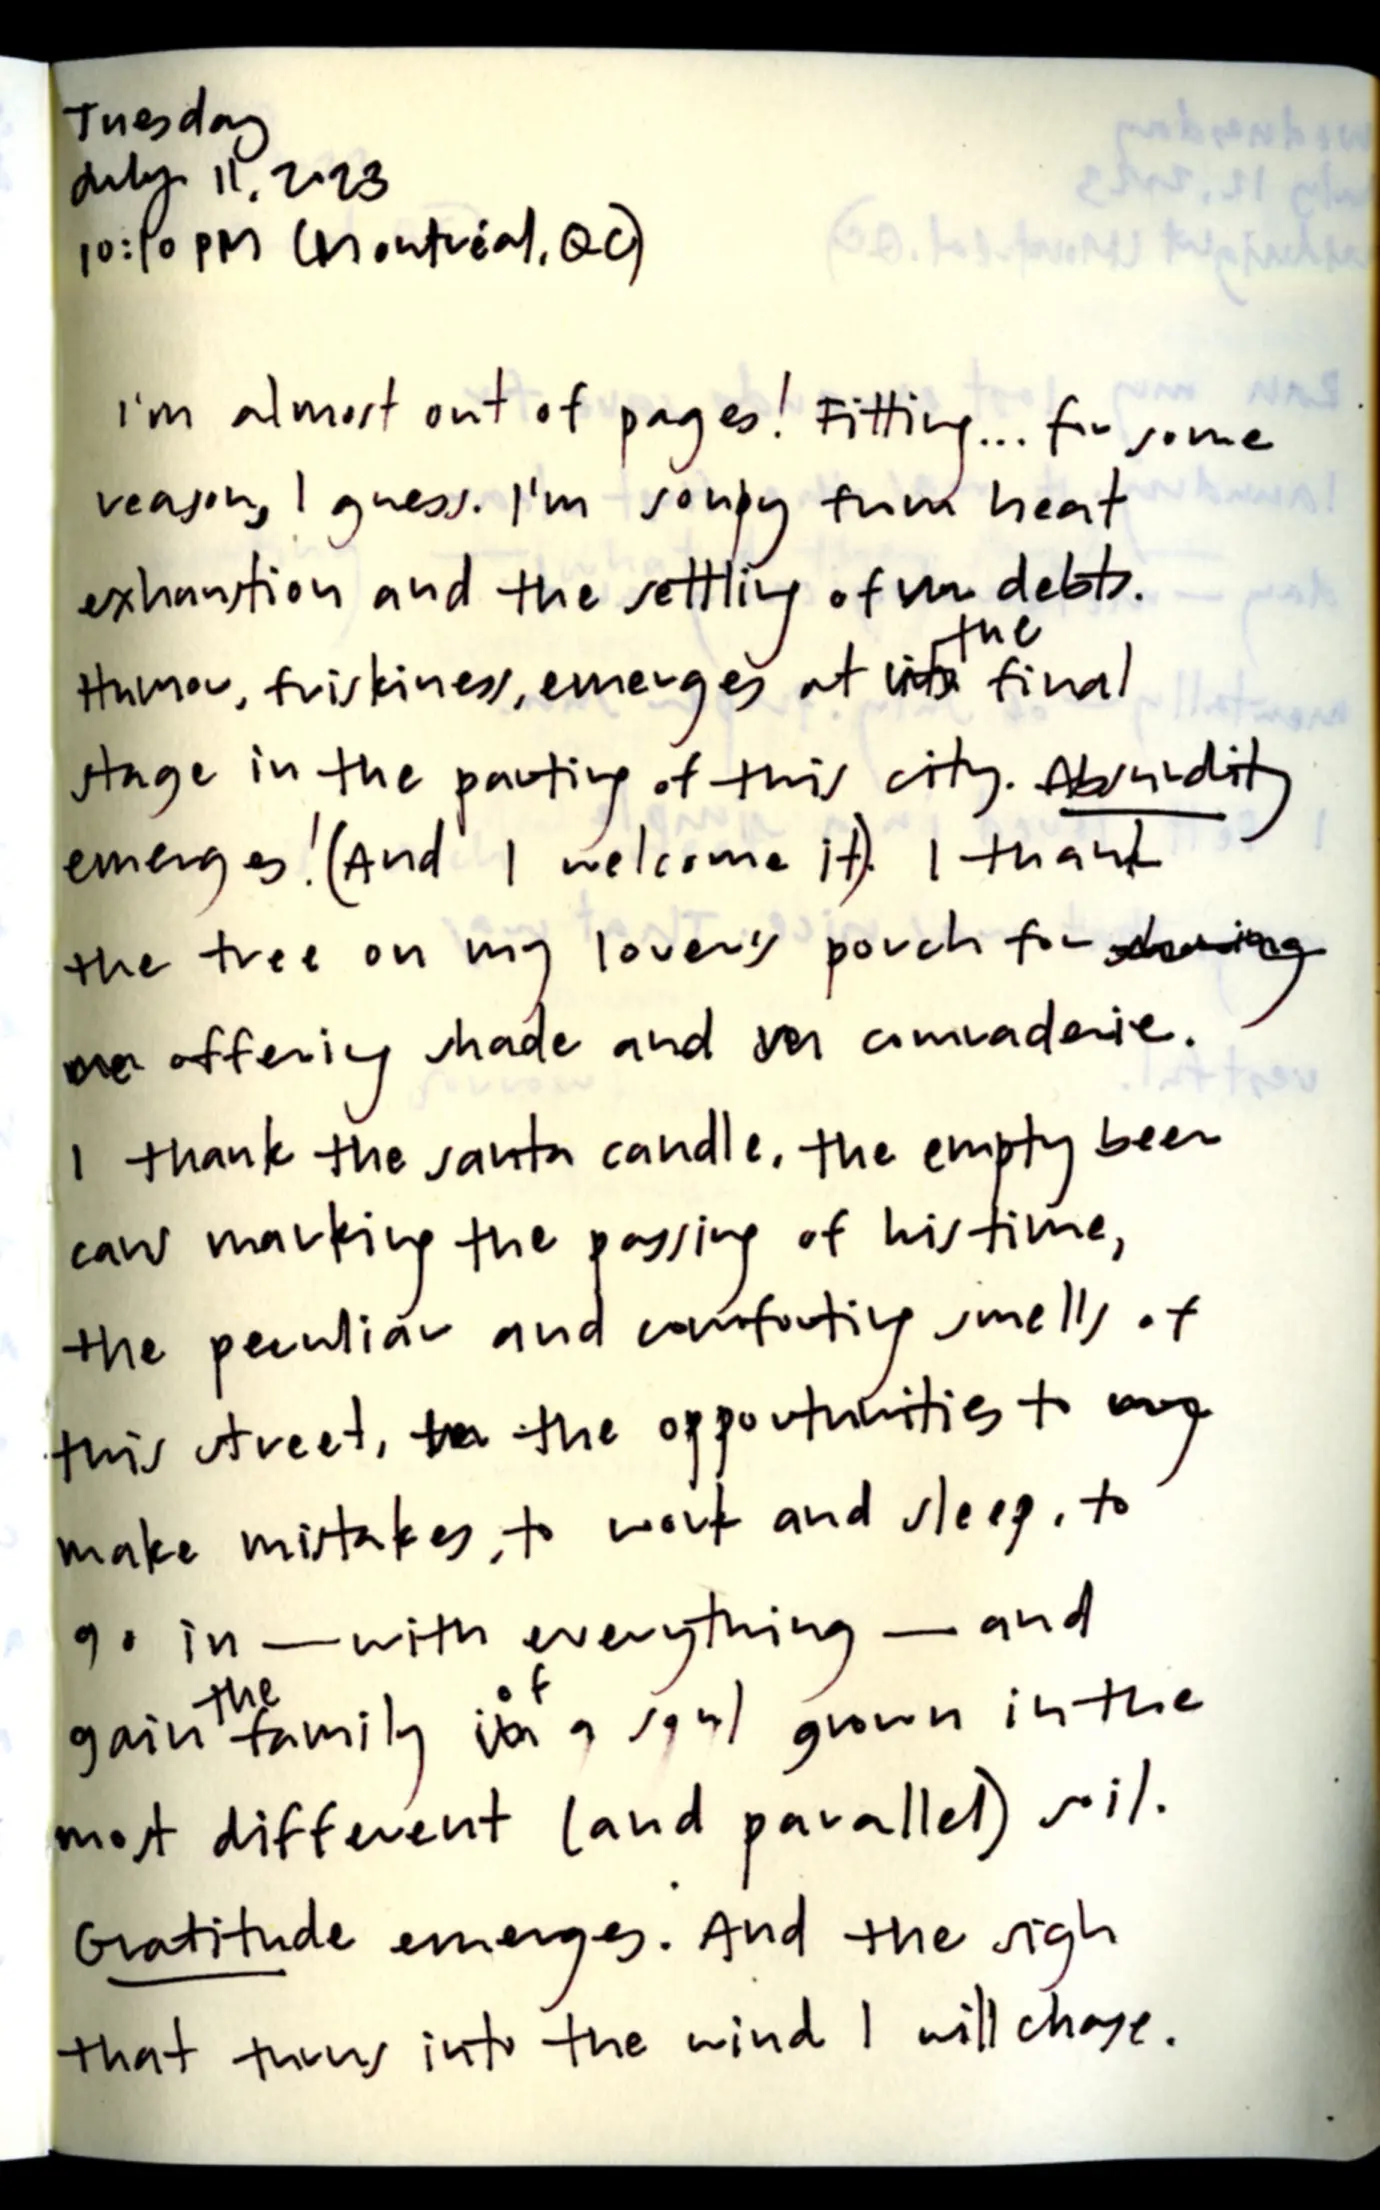 Tuesday
July 11, 2023
10:10 PM (Montréal, QC)
I'm almost out of pages! Fitting... for some
reason, I guess. I'm soupy from heat
exhaustion and the settling of debts.
Humor, friskiness, emerges at the final
stage in the parting of this city. Absurdity
emerges! (And I welcome it). I thank
the tree on my lover's porch for
offering shade and comraderie.
I thank the santa candle, the empty beer
cans marking the passing of his time,
the peculiar and comforting smells of
this street, the opportunities to
make mistakes, to work and sleep, to
go in — with everything — and
gain the family of a soul grown in the
most different (and parallel) soil.
Gratitude emerges. And the sigh
that turns into the wind I will chase.